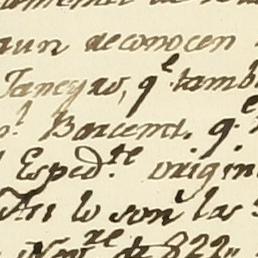 aun deconocen
Janeyro, qᵉ tamb
Barcemt. qᵉ
Espedᵗᵉ origin
Asi lo son las
Novʳᵉ de 822,,